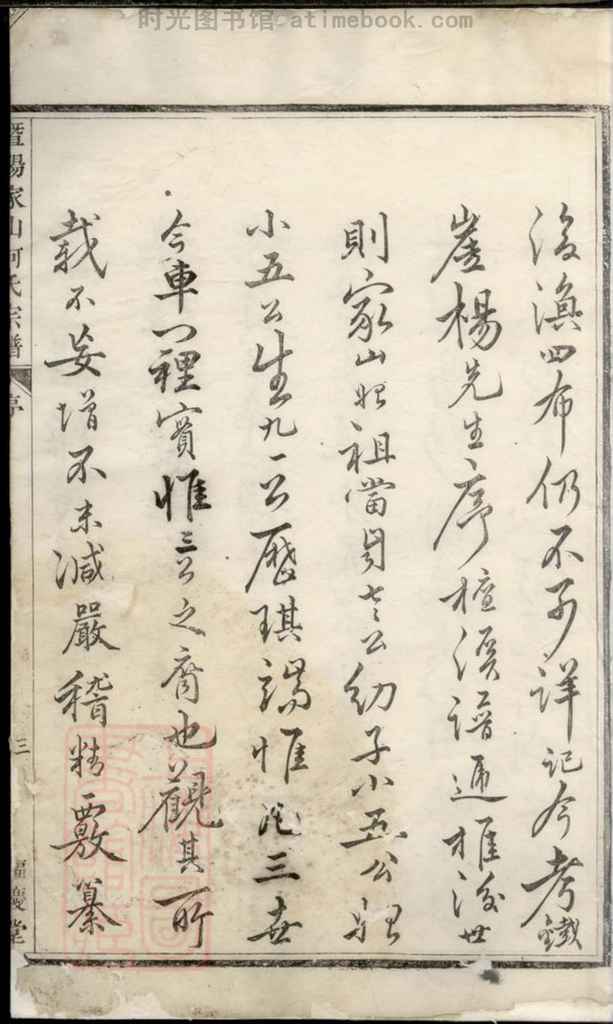 时光图书馆 atimebook.com
後漁四布仍不可詳記今考鐵
崖楊先生序檀溪譜遞推後世
則家山始祖當是七公幼子小五公始
小五公生九一公歷琪端惟三世
今車門裡實惟三公之裔也觀其所
載不妄增不末減嚴稽精覈纂
暨陽家山何氏宗譜
三